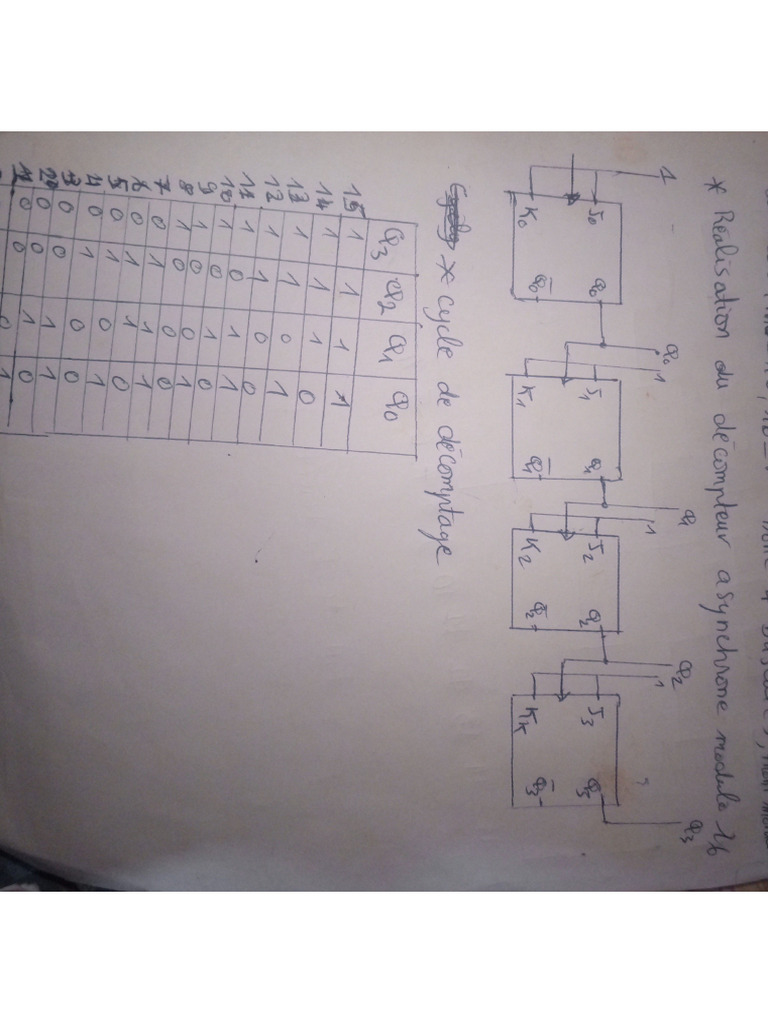 * Réalisation du décompteur asynchrone modulo 16
1 Q0 1 Q1 1 Q2 1 Q3
J0 Q0 J1 Q1 J2 Q2 J3 Q3
K0 Q̅0 K1 Q̅1 K2 Q̅2 KK Q̅3
* cycle de décomptage
Q3 Q2 Q1 Q0
15 1 1 1 1
14 1 1 1 0
13 1 1 0 1
12 1 1 0 0
11 1 0 1 1
10 1 0 1 0
9 1 0 0 1
8 1 0 0 0
7 0 1 1 1
6 0 1 1 0
5 0 1 0 1
4 0 1 0 0
3 0 0 1 1
2 0 0 1 0
1 0 0 0 1